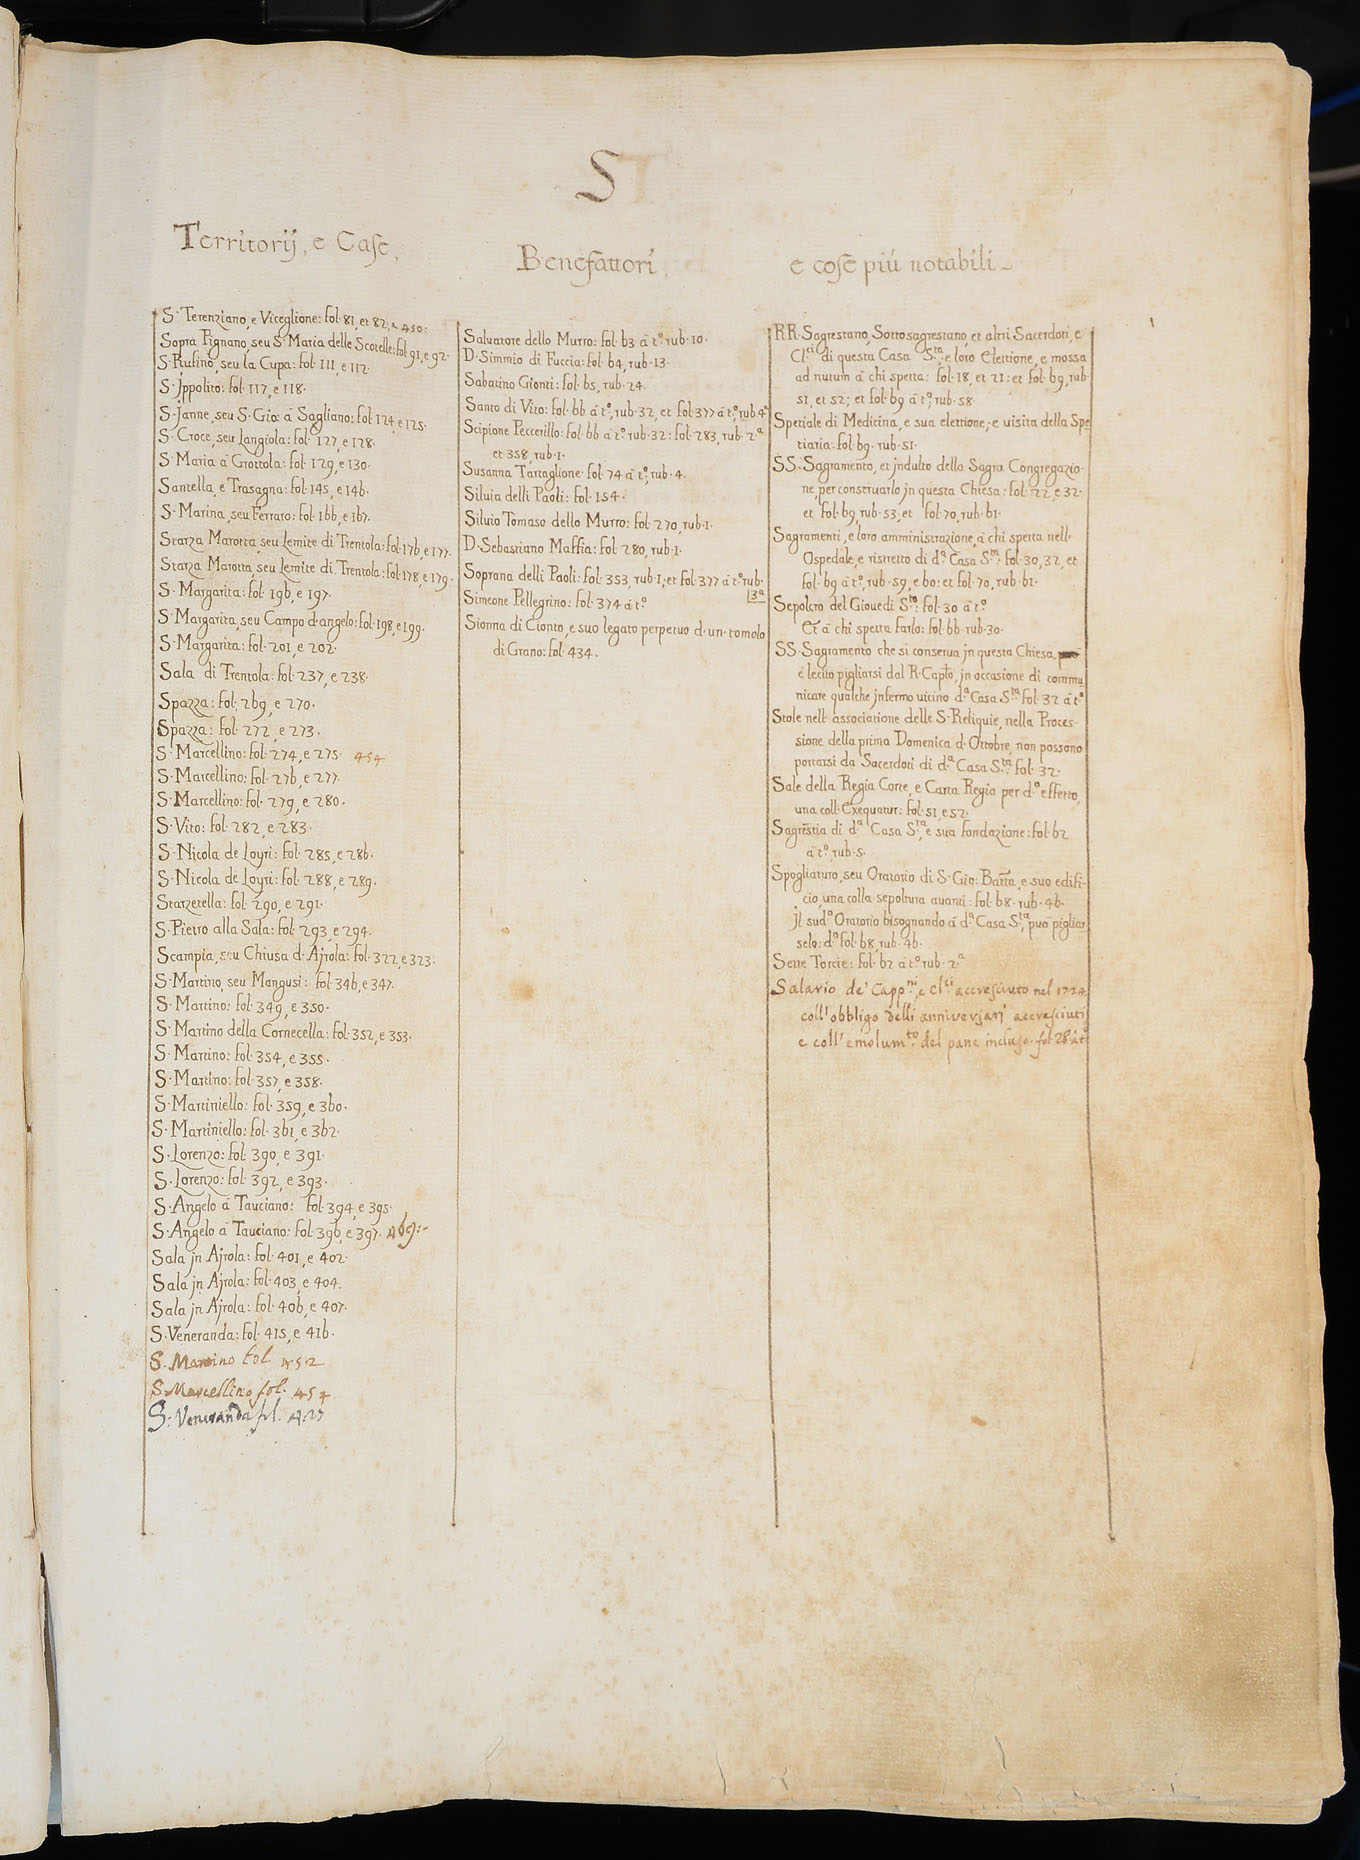 S
Territorij, e Case,
S. Terenziano, e Viceglione: fol. 81, et 82, e 450:
Sopra Pignano, seu S. Maria delle Scotelle: fol. 91, e 92.
S. Rufino, seu la Cupa: fol. 111, e 112.
S. Jppolito: fol. 117, e 118.
S. Janne, seu S. Gio: à Sagliano: fol. 124, e 125.
S. Croce, seu Langiola: fol. 127, e 128.
S. Maria à Grottola: fol. 129, e 130.
Santella, e Trasagna: fol. 145, e 146.
S. Marina, seu Ferraro: fol. 166, e 167.
Starza Marotta, seu Lemite di Trentola: fol. 176, e 177.
Starza Marotta, seu Lemite di Trentola: fol. 178, e 179.
S. Margarita: fol. 196, e 197.
S. Margarita, seu Campo d'angelo: fol. 198, e 199.
S. Margarita: fol. 201, e 202.
Sala di Trentola: fol. 237, e 238.
Spazza: fol. 269, e 270.
Spazza: fol. 272, e 273.
S. Marcellino: fol. 274, e 275. 454
S. Marcellino: fol. 276, e 277.
S. Marcellino: fol. 279, e 280.
S. Vito: fol. 282, e 283.
S. Nicola de Loyri: fol. 285, e 286.
S. Nicola de Loyri: fol. 288, e 289.
Starzetella: fol. 290, e 291.
S. Pietro alla Sala: fol. 293, e 294.
Scampia, seu Chiusa d'Ajrola: fol. 322, e 323.
S. Martino, seu Mangusi: fol. 346, e 347.
S. Martino: fol. 349, e 350.
S. Martino della Cornecella: fol. 352, e 353.
S. Martino: fol. 354, e 355.
S. Martino: fol. 357, e 358.
S. Martiniello: fol. 359, e 360.
S. Martiniello: fol. 361, e 362.
S. Lorenzo: fol. 390, e 391.
S. Lorenzo: fol. 392, e 393.
S. Angelo à Tauciano: fol. 394, e 395.
S. Angelo à Tauciano: fol. 396, e 397. 469:-
Sala jn Ajrola: fol. 401, e 402.
Sala jn Ajrola: fol. 403, e 404.
Sala jn Ajrola: fol. 406, e 407.
S. Veneranda: fol. 415, e 416.
S. Martino fol. 452
S. Marcellino fol. 454
S. Veneranda fol. 427
Benefattori,
Salvatore dello Murro: fol. 63 à t.º rub. 10.
D. Simmio di Fuccia: fol. 64, rub. 13.
Sabatino Gionti: fol. 65, rub. 24.
Santo di Vito: fol. 66 à t.º, rub. 32, et fol. 377 à t.º, rub. 4ª
Scipione Peccerillo: fol. 66 à t.º rub. 32: fol. 283, rub. 2ª
et 358, rub. 1.
Susanna Tartaglione: fol. 74 à t.º, rub. 4.
Siluia delli Paoli: fol. 154.
Siluio Tomaso dello Murro: fol. 270, rub. 1.
D. Sebastiano Maffia: fol. 280, rub. 1.
Soprana delli Paoli: fol. 353, rub. 1; et fol. 377 à t.º rub.
3ª
Simeone Pellegrino: fol. 374 à t.º
Sionna di Cionto, e suo legato perpetuo d'un tomolo
di Grano: fol. 434.
e cose più notabili
RR. Sagrestano, Sottosagrestano, et altri Sacerdoti, e
Cl.ci di questa Casa S.ta, e loro Elettione, e mossa
ad nutum à chi spetta: fol. 18, et 21: et fol. 69, rub.
51, et 52; et fol. 69 à t.º, rub. 58
Spetiale di Medicina, e sua elettione; e uisita della Spe
tiaria: fol. 69. rub. 51.
SS. Sagramento, et jndulto della Sagra Congregazio-
ne, per conseruarlo jn questa Chiesa: fol. 22, e 32.
et fol. 69, rub. 53, et fol. 70, rub. 61.
Sagramenti, e loro amministrazione, à chi spetta nell'
Ospedale, e ristretto di d.ª Casa S.ta: fol. 30, 32, et
fol. 69 à t.º, rub. 59, e 60: et fol. 70, rub. 61.
Sepolcro del Giouedì S.to: fol. 30 à t.º
Et à chi spetta farlo: fol. 66. rub. 30.
SS. Sagramento che si conserua jn questa Chiesa,
è lecito pigliarsi dal R. Capto, jn occasione di commu
nicare qualche jnfermo uicino d.ª Casa S.ta fol. 32 à t.º
Stole nell'associatione delle S. Reliquie, nella Proces-
sione della prima Domenica d'Ottobre, non possono
portarsi da Sacerdoti di d.ª Casa S.ta fol. 32.
Sale della Regia Corte, e Carta Regia per d.º effetto,
una coll'Exequatur: fol. 51, e 52.
Sagrestia di d.ª Casa S.ta, e sua fondazione: fol. 62
à t.º, rub. 5.
Spogliaturo, seu Oratorio di S. Gio: Batta, e suo edifi-
cio, una colla sepoltura auanti: fol. 68. rub. 46.
Jl sud.º Oratorio bisognando à d.ª Casa S.ta, può pigliar
selo: d.º fol. 68, rub. 46.
Sette Torcie: fol. 62 à t.º rub. 2ª
Salario de' Capp.ni, e Cl.ci accresciuto nel 1724
coll'obbligo delli anniversarj accresciuti
e coll'emolum.to del pane incluso. fol. 28 à t.º